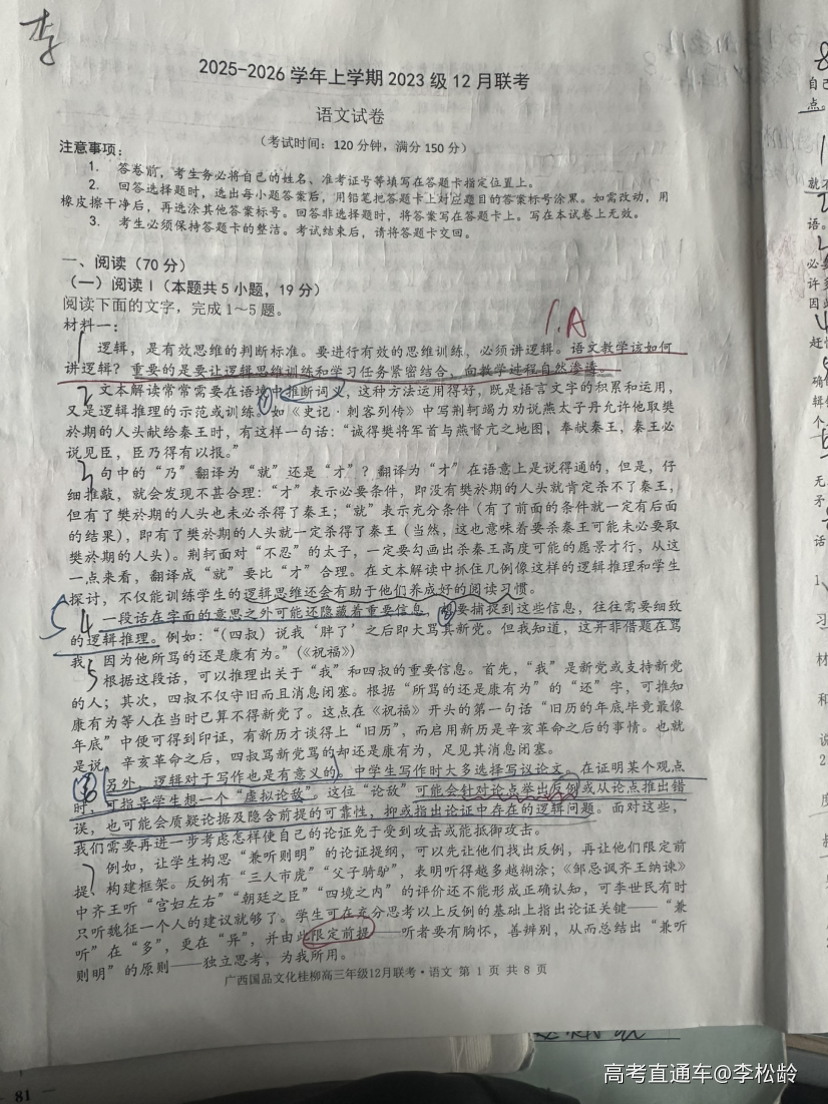 李
2025-2026 学年上学期 2023 级 12 月联考
语文试卷
（考试时间：120 分钟，满分 150 分）
注意事项：
1. 答卷前，考生务必将自己的姓名、准考证号等填写在答题卡指定位置上。
2. 回答选择题时，选出每小题答案后，用铅笔把答题卡上对应题目的答案标号涂黑。如需改动，用
橡皮擦干净后，再选涂其他答案标号。回答非选择题时，将答案写在答题卡上。写在本试卷上无效。
3. 考生必须保持答题卡的整洁。考试结束后，请将答题卡交回。
一、阅读（70 分）
（一）阅读 I（本题共 5 小题，19 分）
阅读下面的文字，完成 1～5 题。
材料一：
1.A
1 逻辑，是有效思维的判断标准。要进行有效的思维训练，必须讲逻辑。语文教学该如何
讲逻辑？重要的是要让逻辑思维训练和学习任务紧密结合，向教学过程自然渗透。
2 文本解读常常需要在语境中推断词义，这种方法运用得好，既是语言文字的积累和运用，
又是逻辑推理的示范或训练。①如《史记·刺客列传》中写荆轲竭力劝说燕太子丹允许他取樊
於期的人头献给秦王时，有这样一句话：“诚得樊将军首与燕督亢之地图，奉献秦王，秦王必
说见臣，臣乃得有以报。”
3 句中的“乃”翻译为“就”还是“才”？翻译为“才”在语意上是说得通的，但是，仔
细推敲，就会发现不甚合理：“才”表示必要条件，即没有樊於期的人头就肯定杀不了秦王，
但有了樊於期的人头也未必杀得了秦王；“就”表示充分条件（有了前面的条件就一定有后面
的结果），即有了樊於期的人头就一定杀得了秦王（当然，这也意味着要杀秦王可能未必要取
樊於期的人头）。荆轲面对“不忍”的太子，一定要勾画出杀秦王高度可能的愿景才行，从这
一点来看，翻译成“就”要比“才”合理。在文本解读中抓住几例像这样的逻辑推理和学生
探讨，不仅能训练学生的逻辑思维还会有助于他们养成好的阅读习惯。
5 4 一段话在字面的意思之外可能还隐藏着重要信息，②想要捕捉到这些信息，往往需要细致
的逻辑推理。例如：“（四叔）说我‘胖了’之后即大骂其新党。但我知道，这并非借题在骂
我，因为他所骂的还是康有为。”（《祝福》）
5 根据这段话，可以推理出关于“我”和四叔的重要信息。首先，“我”是新党或支持新党
的人；其次，四叔不仅守旧而且消息闭塞。根据“所骂的还是康有为”的“还”字，可推知
康有为等人在当时已算不得新党了。这点在《祝福》开头的第一句话“旧历的年底毕竟最像
年底”中便可得到印证，有新历才谈得上“旧历”，而启用新历是辛亥革命之后的事情。也就
是说，辛亥革命之后，四叔骂新党骂的却还是康有为，足见其消息闭塞。
另外，逻辑对于写作也是有意义的。中学生写作时大多选择写议论文。在证明某个观点
时，可指导学生想一个“虚拟论敌”。这位“论敌”可能会针对论点举出反例或从论点推出错
误，也可能会质疑论据及隐含前提的可靠性，抑或指出论证中存在的逻辑问题。面对这些，
我们需要再进一步考虑怎样使自己的论证免于受到攻击或能抵御攻击。
7 例如，让学生构思“兼听则明”的论证提纲，可以先让他们找出反例，再让他们限定前
提，构建框架。反例有“三人市虎”“父子骑驴”，表明听得越多越糊涂；《邹忌讽齐王纳谏》
中齐王听“宫妇左右”“朝廷之臣”“四境之内”的评价还不能形成正确认知，可李世民有时
只听魏征一个人的建议就够了。学生可在充分思考以上反例的基础上指出论证关键——“兼
听”在“多”，更在“异”，并由此限定前提——听者要有胸怀，善辨别，从而总结出“兼听
则明”的原则——独立思考，为我所用。
广西国品文化桂柳高三年级12月联考·语文 第 1 页 共 8 页
81
高考直通车@李松龄